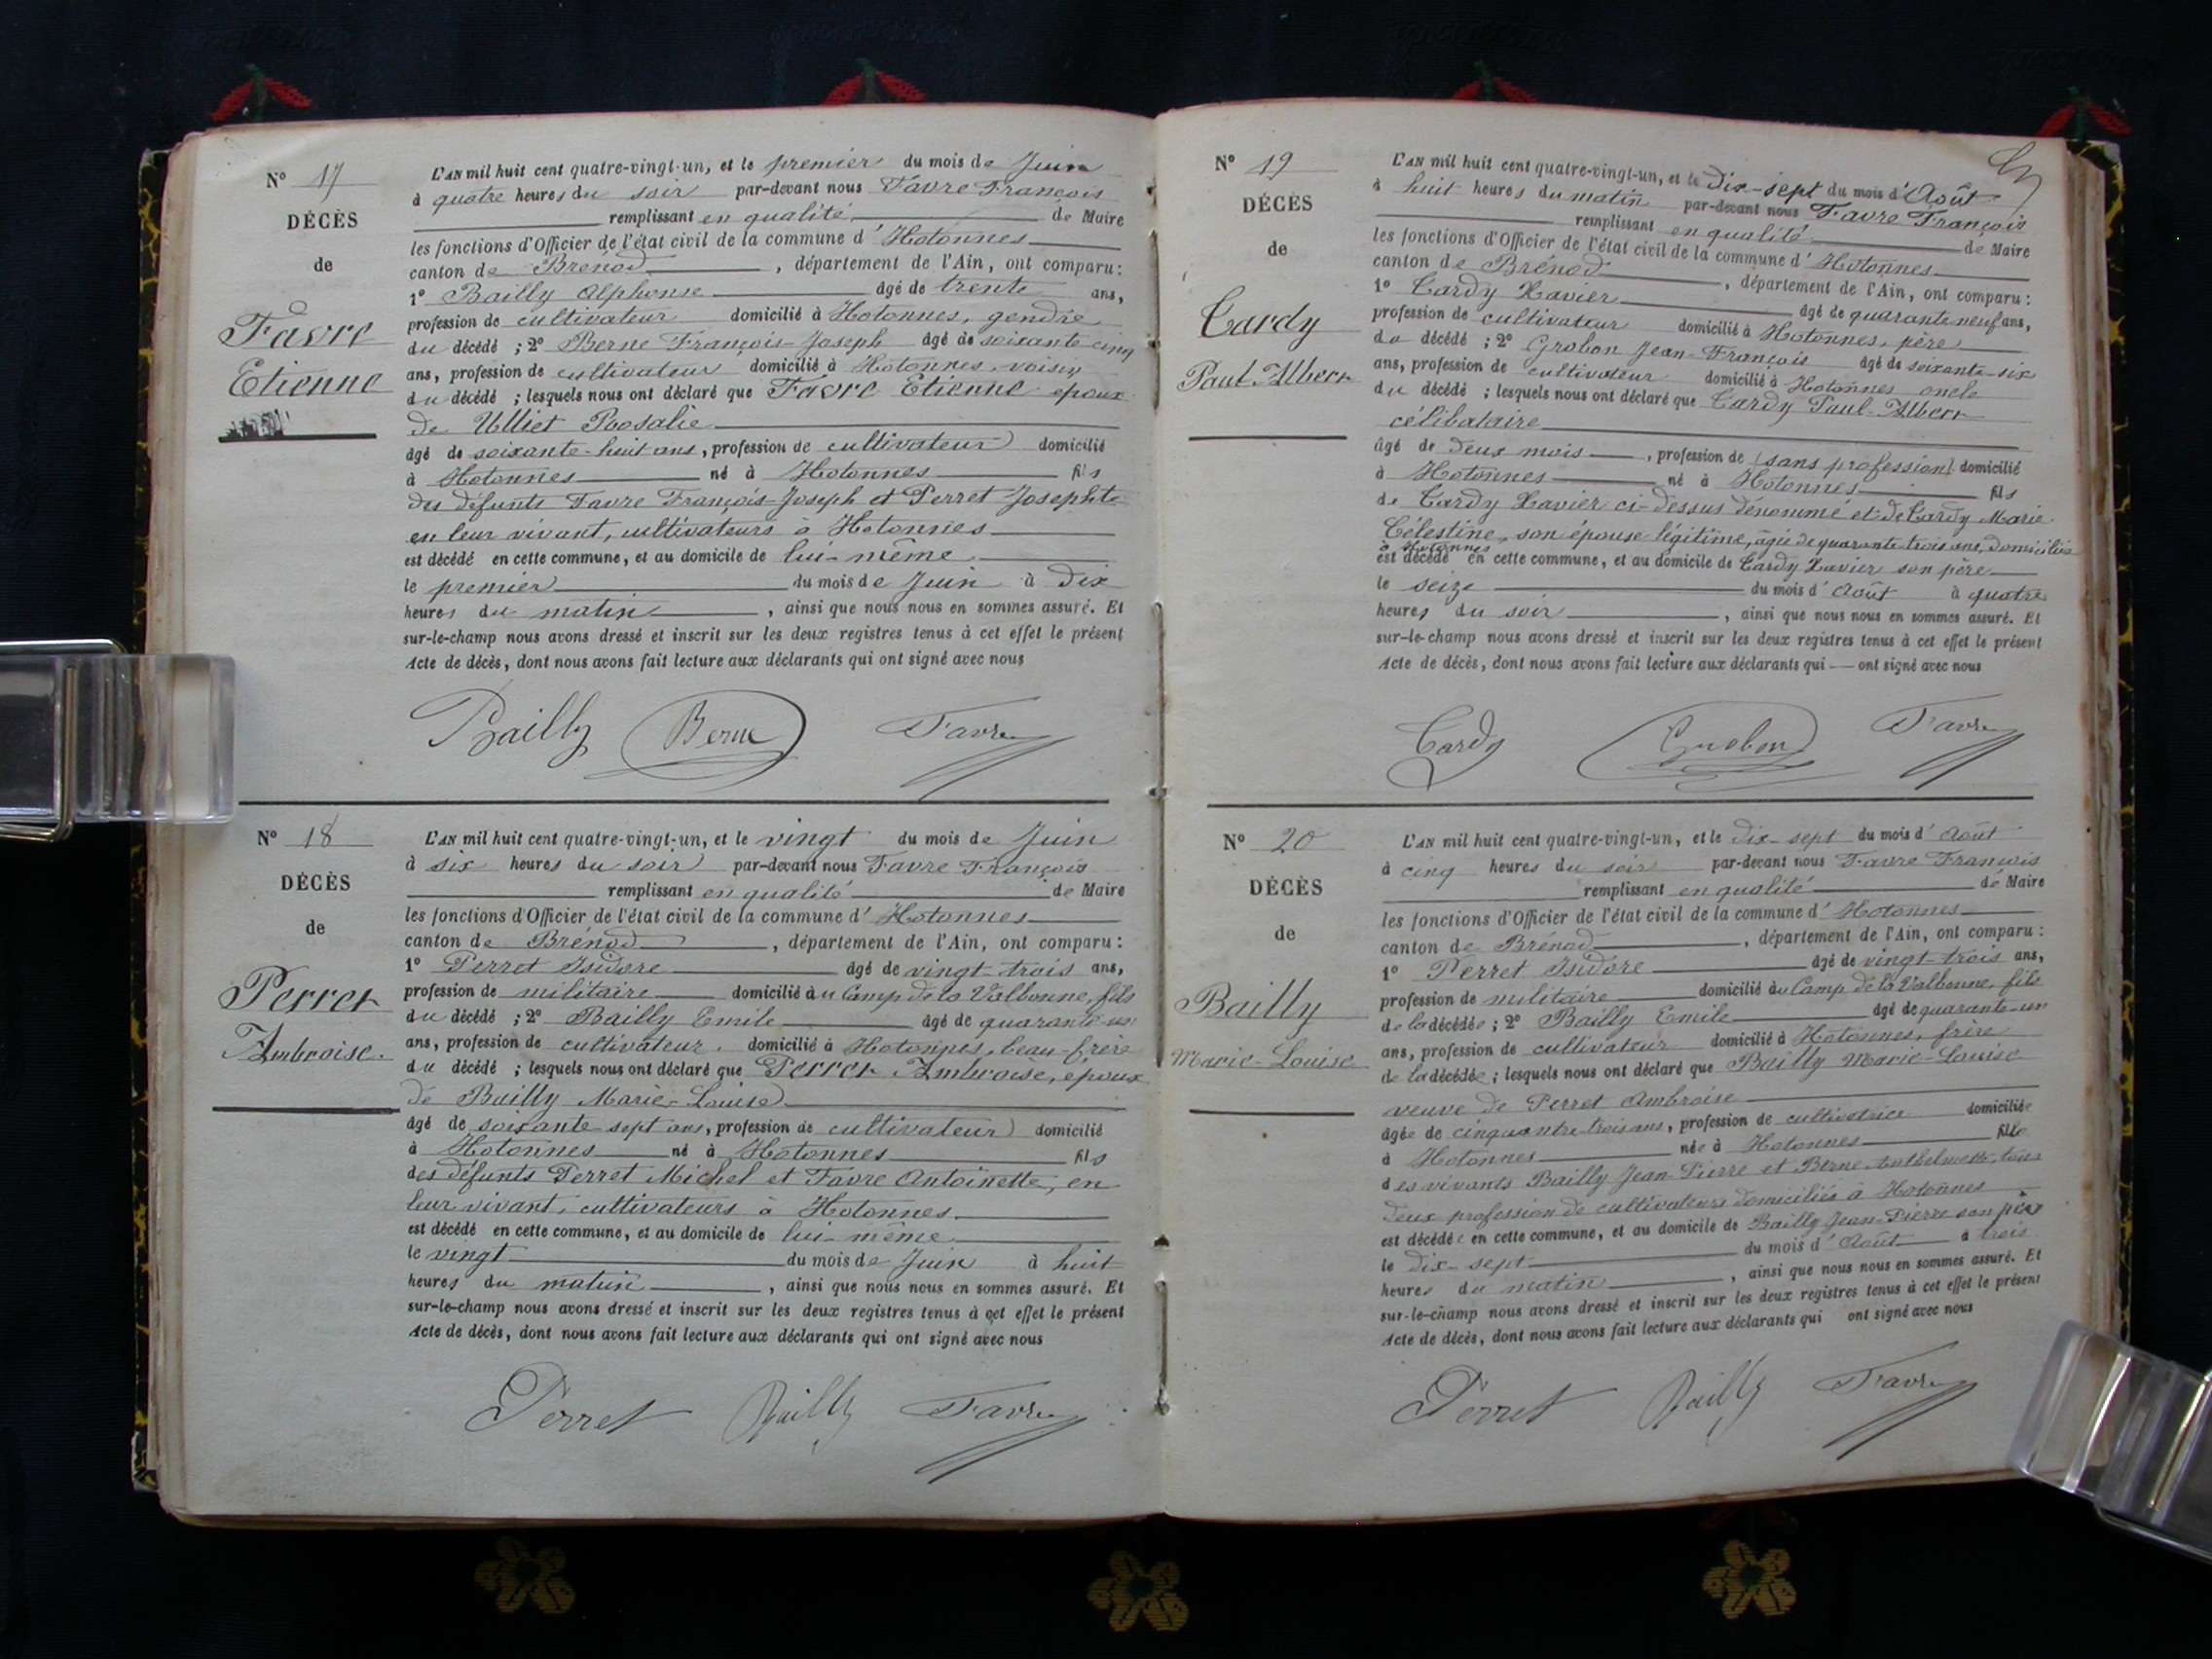 N° 17
DÉCÈS
de
Favre
Etienne
L'AN mil huit cent quatre-vingt-un, et le premier du mois de Juin
à quatre heures du soir par-devant nous Favre François
remplissant en qualité de Maire
les fonctions d'Officier de l'état civil de la commune d'Hotonnes
canton de Brénod, département de l'Ain, ont comparu:
1° Bailly Alphonse âgé de trente ans,
profession de cultivateur domicilié à Hotonnes, gendre
du décédé ; 2° Berne François-Joseph âgé de soixante-cinq
ans, profession de cultivateur domicilié à Hotonnes, voisin
du décédé ; lesquels nous ont déclaré que Favre Etienne epoux
de Ulliet Rosalie
âgé de soixante-huit ans, profession de cultivateur domicilié
à Hotonnes né à Hotonnes fils
des défunts Favre François-Joseph et Perret Josephte
en leur vivant, cultivateurs à Hotonnes
est décédé en cette commune, et au domicile de lui-même
le premier du mois de Juin à dix
heures du matin, ainsi que nous nous en sommes assuré. Et
sur-le-champ nous avons dressé et inscrit sur les deux registres tenus à cet effet le présent
Acte de décès, dont nous avons fait lecture aux déclarants qui ont signé avec nous
Bailly Berne Favre
N° 18
DÉCÈS
de
Perret
Ambroise.
L'AN mil huit cent quatre-vingt-un, et le vingt du mois de Juin
à six heures du soir par-devant nous Favre François
remplissant en qualité de Maire
les fonctions d'Officier de l'état civil de la commune d'Hotonnes
canton de Brénod, département de l'Ain, ont comparu:
1° Perret Isidore âgé de vingt-trois ans,
profession de militaire domicilié au Camp de la Valbonne, fils
du décédé ; 2° Bailly Emile âgé de quarante-un
ans, profession de cultivateur. domicilié à Hotonnes, beau-frère
du décédé ; lesquels nous ont déclaré que Perret Ambroise, epoux
de Bailly Marie-Louise
âgé de soixante-sept ans, profession de cultivateur domicilié
à Hotonnes né à Hotonnes fils
des défunts Perret Michel et Favre Antoinette, en
leur vivant, cultivateurs à Hotonnes
est décédé en cette commune, et au domicile de lui-même
le vingt du mois de Juin à huit
heures du matin, ainsi que nous nous en sommes assuré. Et
sur-le-champ nous avons dressé et inscrit sur les deux registres tenus à cet effet le présent
Acte de décès, dont nous avons fait lecture aux déclarants qui ont signé avec nous
Perret Bailly Favre
N° 19
DÉCÈS
de
Cardy
Paul-Albert
L'AN mil huit cent quatre-vingt-un, et le dix-sept du mois d'Août
à huit heures du matin par-devant nous Favre François
remplissant en qualité de Maire
les fonctions d'Officier de l'état civil de la commune d'Hotonnes
canton de Brénod, département de l'Ain, ont comparu:
1° Cardy Xavier âgé de quarante neuf ans,
profession de cultivateur domicilié à Hotonnes, père
du décédé ; 2° Grobon Jean-François âgé de soixante-six
ans, profession de cultivateur domicilié à Hotonnes oncle
du décédé ; lesquels nous ont déclaré que Cardy Paul-Albert
célibataire
âgé de deux mois, profession de (sans profession) domicilié
à Hotonnes né à Hotonnes fils
de Cardy Xavier ci-dessus dénommé et de Cardy Marie
Célestine, son épouse légitime, âgée de quarante-trois ans, domiciliée
à Hotonnes
est décédé en cette commune, et au domicile de Cardy Xavier son père
le seize du mois d'Août à quatre
heures du soir, ainsi que nous nous en sommes assuré. Et
sur-le-champ nous avons dressé et inscrit sur les deux registres tenus à cet effet le présent
Acte de décès, dont nous avons fait lecture aux déclarants qui ont signé avec nous
Cardy Grobon Favre
N° 20
DÉCÈS
de
Bailly
Marie-Louise
L'AN mil huit cent quatre-vingt-un, et le dix-sept du mois d'Août
à cinq heures du soir par-devant nous Favre François
remplissant en qualité de Maire
les fonctions d'Officier de l'état civil de la commune d'Hotonnes
canton de Brénod, département de l'Ain, ont comparu:
1° Perret Isidore âgé de vingt-trois ans,
profession de militaire domicilié au Camp de la Valbonne, fils
de la décédée ; 2° Bailly Emile âgé de quarante-un
ans, profession de cultivateur domicilié à Hotonnes, frère
de la décédée ; lesquels nous ont déclaré que Bailly Marie-Louise
veuve de Perret Ambroise
âgée de cinquantre-trois ans, profession de cultivatrice domiciliée
à Hotonnes née à Hotonnes fille
des vivants Bailly Jean-Pierre et Berne Anthelmette, tous
deux profession de cultivateurs domiciliés à Hotonnes
est décédée en cette commune, et au domicile de Bailly Jean-Pierre son père
le dix-sept du mois d'Août à trois
heures du matin, ainsi que nous nous en sommes assuré. Et
sur-le-champ nous avons dressé et inscrit sur les deux registres tenus à cet effet le présent
Acte de décès, dont nous avons fait lecture aux déclarants qui ont signé avec nous
Perret Bailly Favre